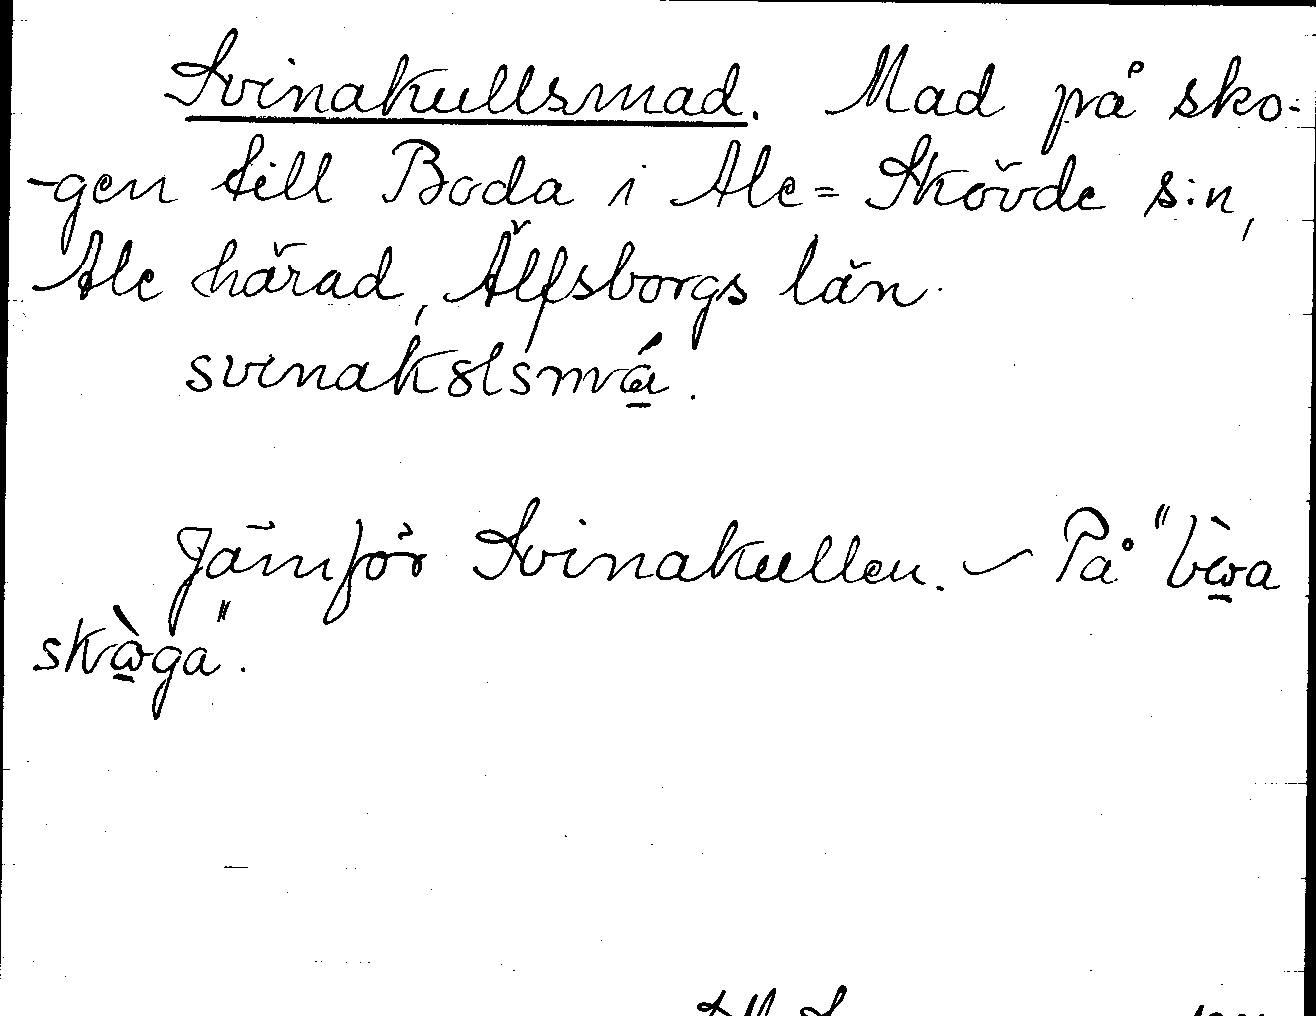 Svinakullsmad. Mad på sko-
-gen till Boda i Ale=Skövde s:n,
Ale härad, Älfsborgs län.
svinakslsmá.
Jämför Svinakullen. – På "bωa
skωga".